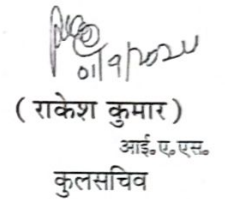 01/9/2024
( राकेश कुमार )
आई.ए.एस.
कुलसचिव